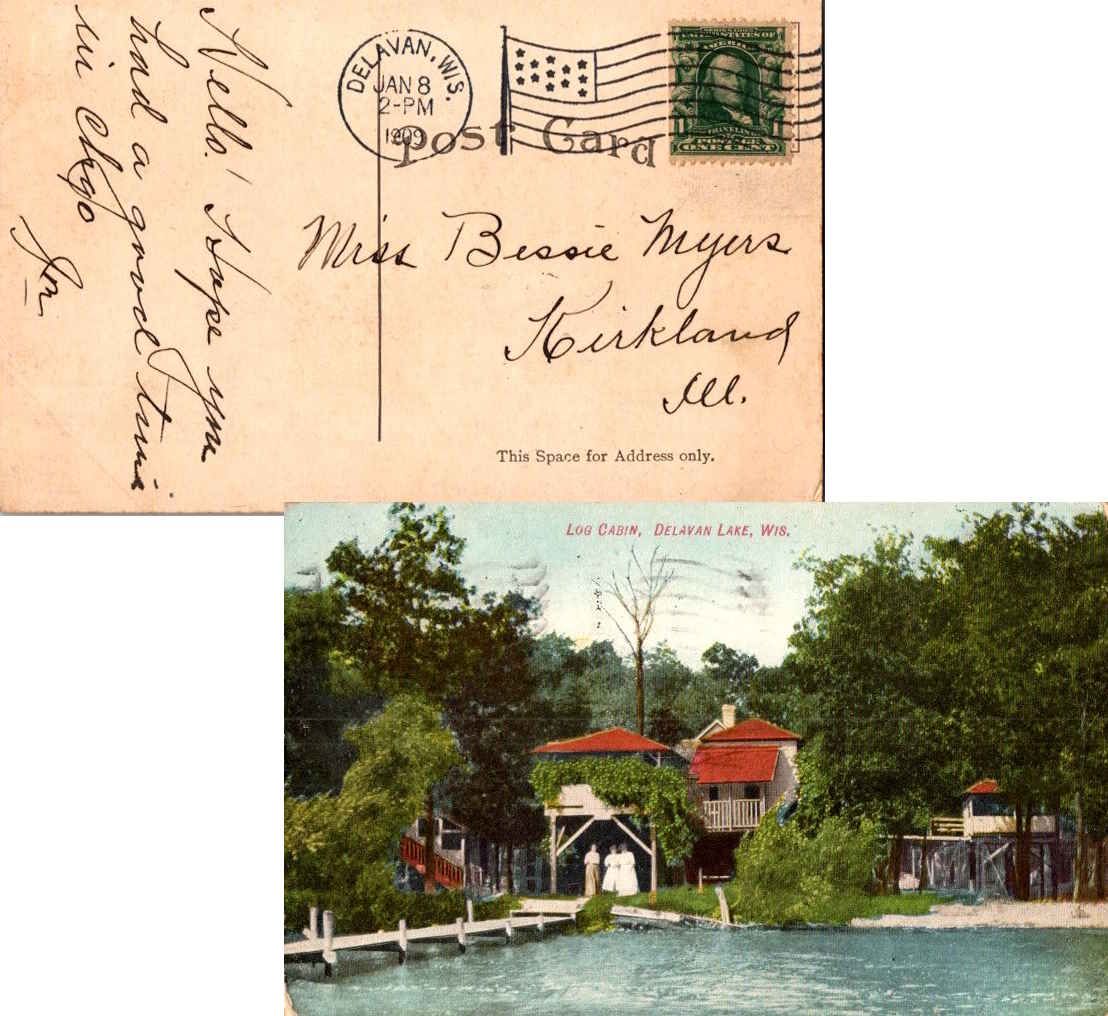 Hello! I Hope you
had a good time
in Chgo
DELAVAN, WIS.
JAN 8
2-PM
1909
SERIES 1902
UNITED STATES OF
AMERICA
1 FRANKLIN 1
POSTAGE
ONE CENT
Post Card
Miss Bessie Myers
Kirkland
Ill.
This Space for Address only.
LOG CABIN, DELAVAN LAKE, WIS.